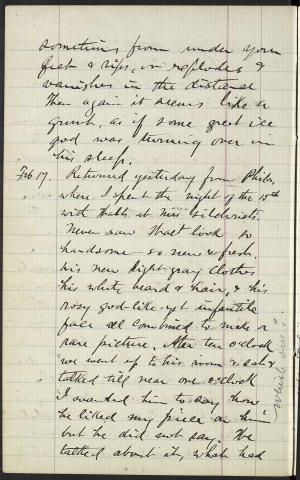 sometimes from under your
feet & rips, or explodes &
vanishes in the distance
Then again it seems like a
grunt, as if some great ice
god was turning over in
his sleep.
Feb 17. Returned yesterday from Phila,
where I spent the night of the 15th
with Walt at Mrs Gilchrists.
Never saw Walt look so
handsome – so new & fresh.
his new light gray clothes
his white beard & hair, & his
rosy god-like yet infantile
face all combined to make a
rare picture. After ten o'clock
we went up to his room & sat &
talked till near one o'clock
I wanted him to say how
he liked my piece on him
but he did not say. We
talked about it, what had
which one?